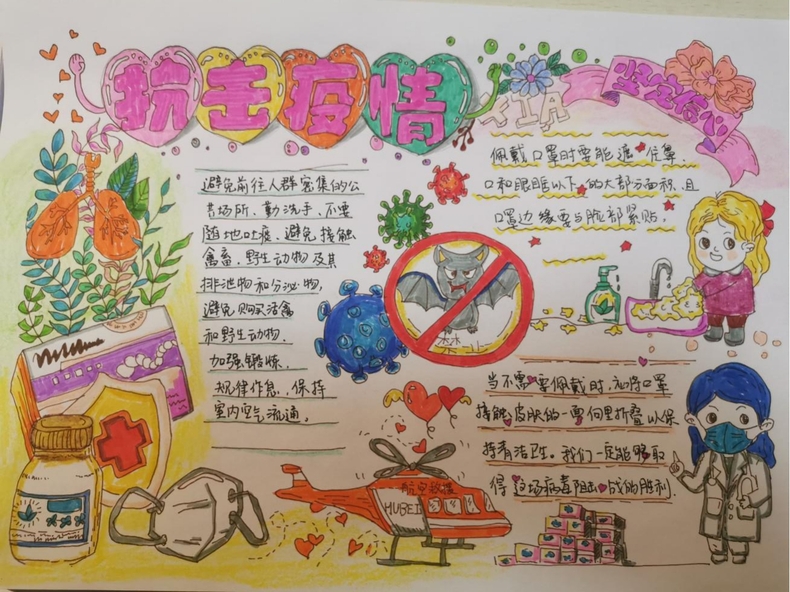 抗击疫情
坚定信心
避免前往人群密集的公
共场所、勤洗手、不要
随地吐痰、避免接触
禽畜、野生动物及其
排泄物和分泌物,
避免购买活禽
和野生动物.
加强锻炼.
规律作息、保持
室内空气流通,
佩戴口罩时要能遮住鼻、
口和眼睛以下的大部分面积,且
口罩边缘要与脸部紧贴,
禁
当不需要佩戴时,
接触皮肤的一面向里折叠以保
持清洁卫生。我们一定能够取
得这场病毒阻击战的胜利.
航空救援
HUBEI